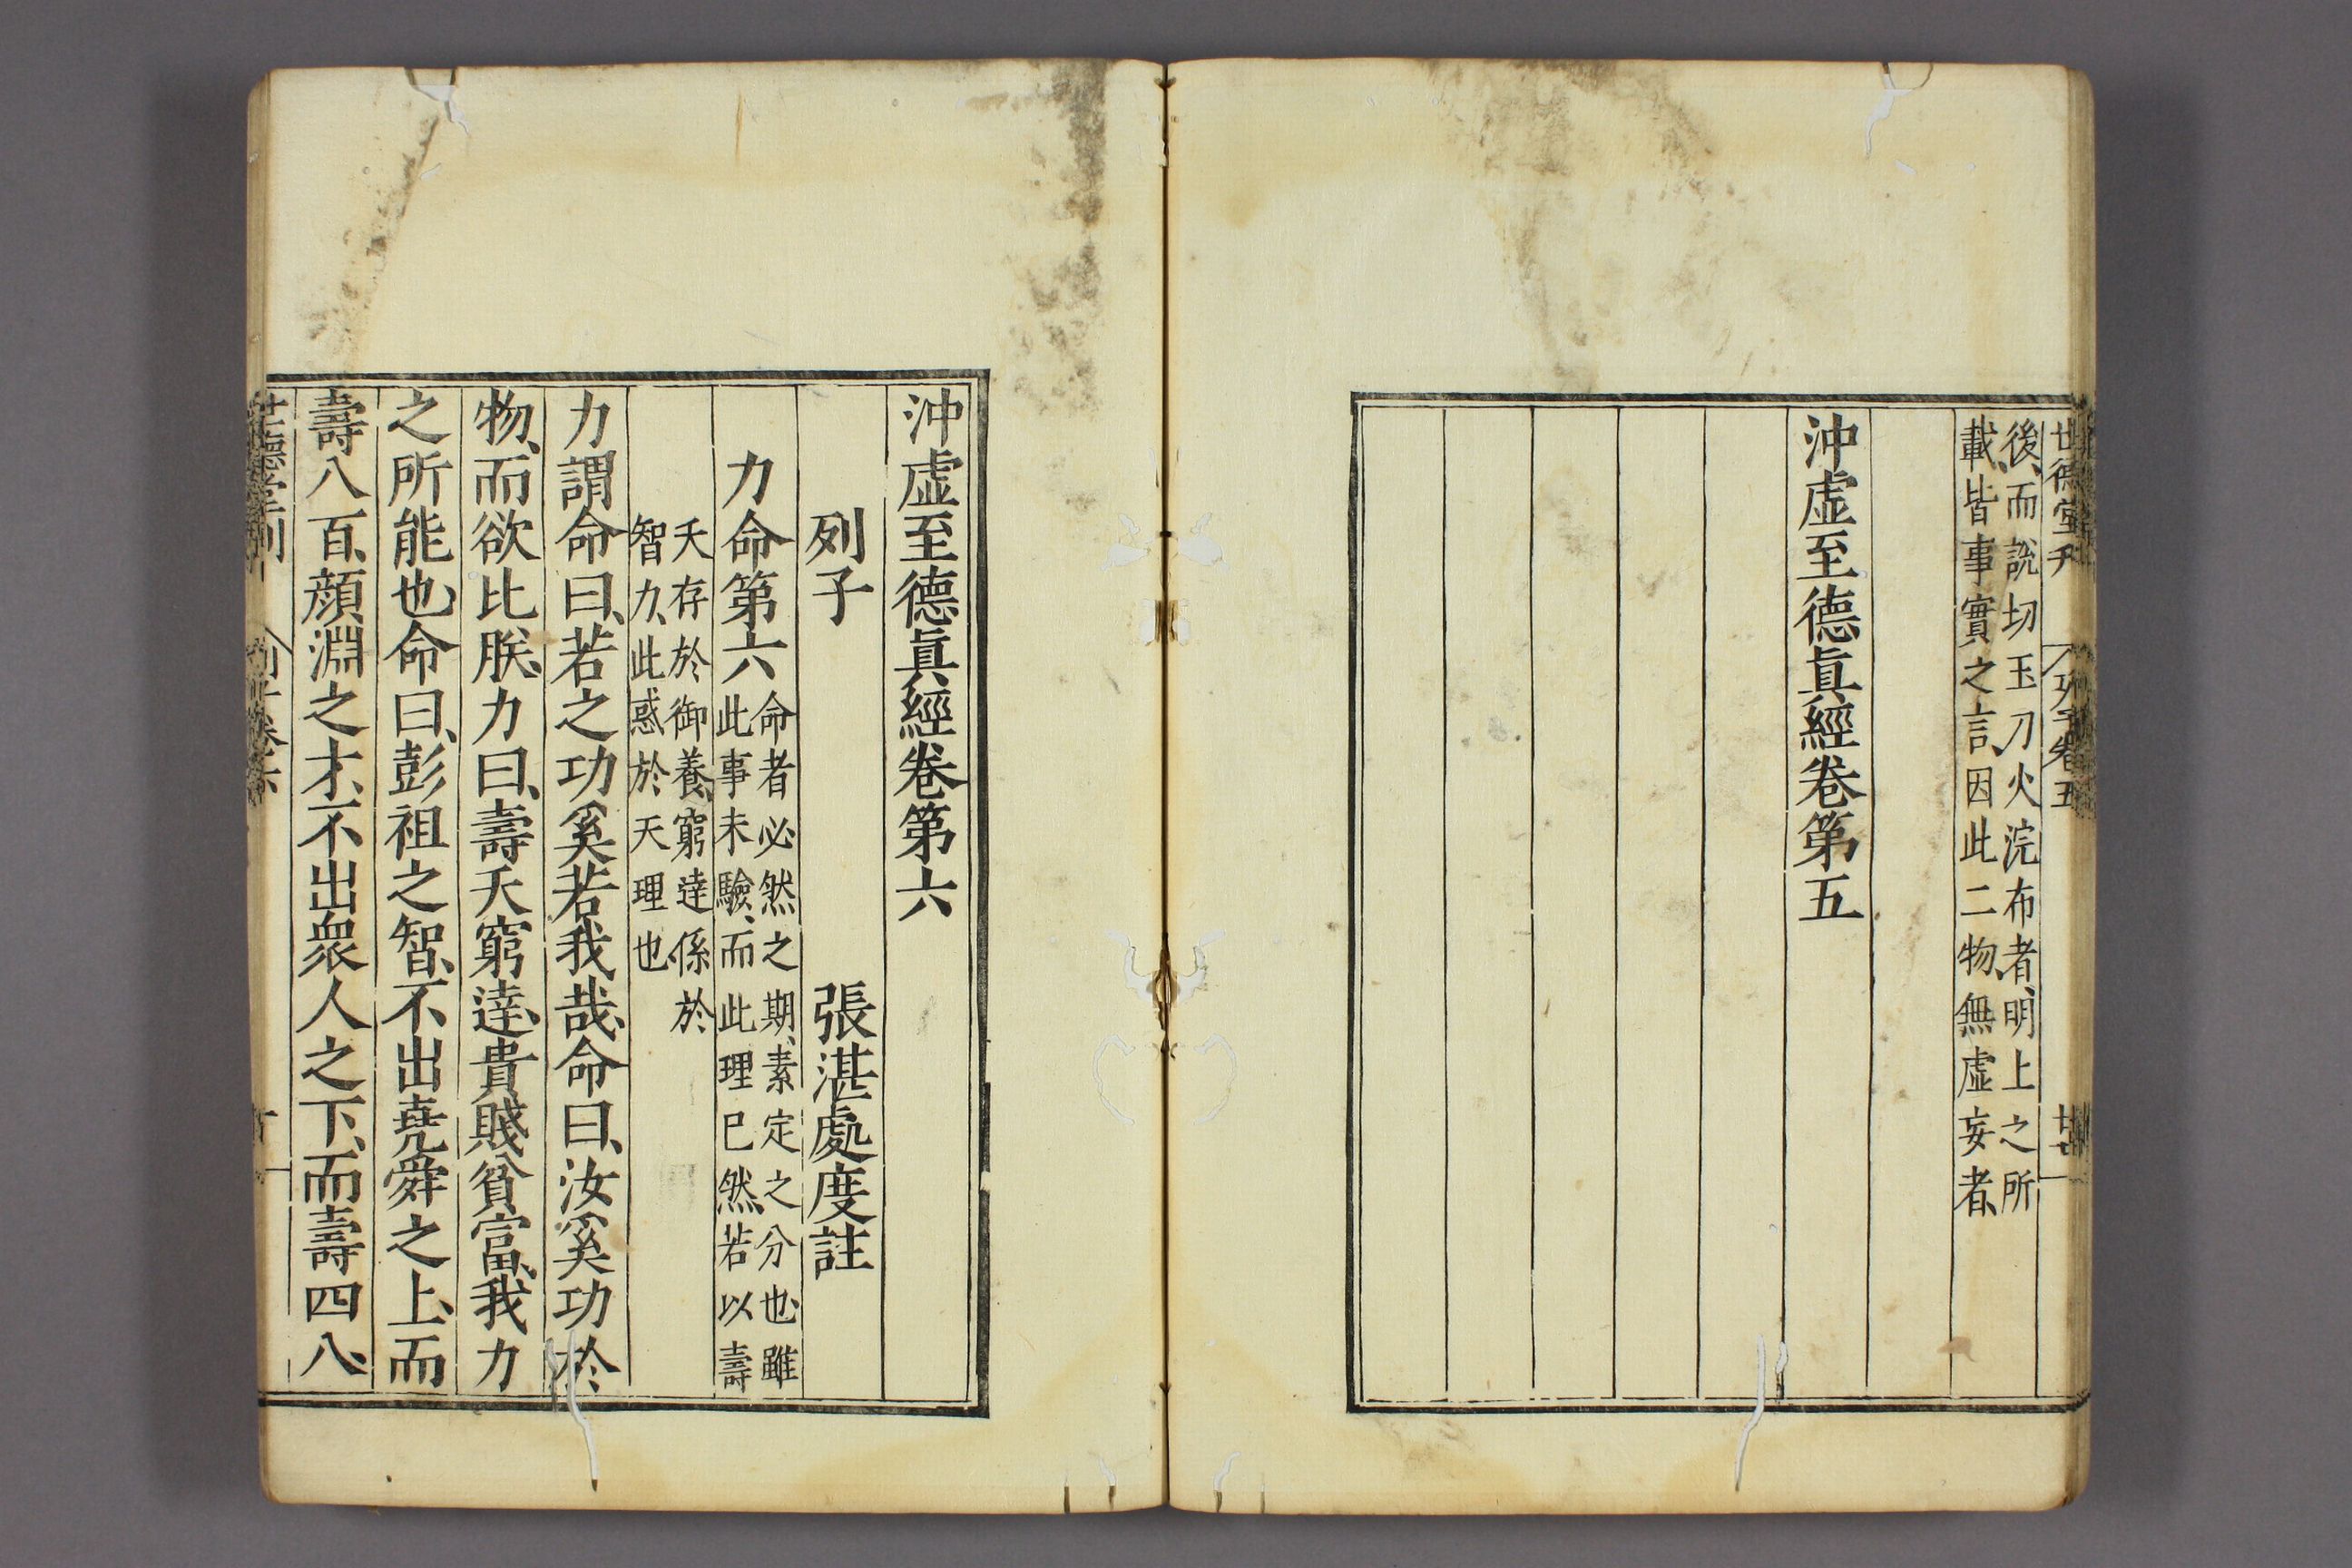 世德堂刊 列子卷五
後、而說切玉刀火浣布者、明上之所
載、皆事實之言、因此二物、無虛妄者、
沖虛至德眞經卷第五
沖虛至德眞經卷第六
列子 張湛處度註
力命第六
命者必然之期、素定之分也、雖
此事未驗、而此理已然、若以壽
夭存於御養、窮達係於
智力、此惑於天理也
力謂命曰、若之功奚若我哉、命曰、汝奚功於
物、而欲比朕、力曰、壽夭窮達、貴賤貧富、我力
之所能也、命曰、彭祖之智、不出堯舜之上、而
壽八百、顏淵之才、不出衆人之下、而壽四八、
世德堂刊 列子卷六